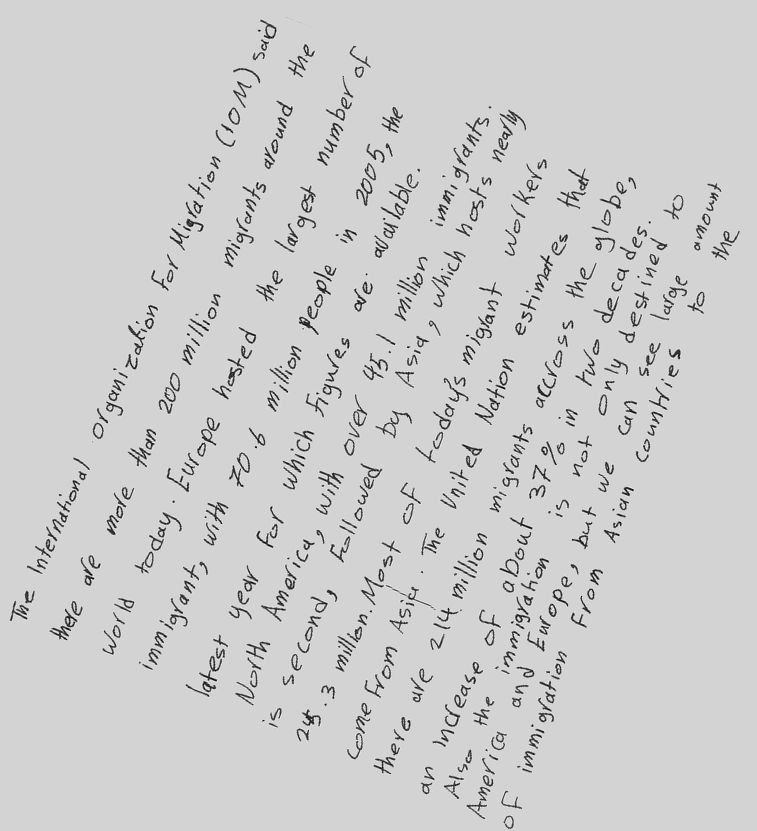 The International organization for Migration (IOM) said
there are more than 200 million migrants around the
world today. Europe hosted the largest number of
immigrant, with 70.6 million people in 2005, the
latest year for which figures are available.
North America, with over 45.1 million immigrants.
is second, followed by Asia, which hosts nearly
25.3 million. Most of today's migrant workers
come from Asia. The United Nation estimates that
there are 214 million migrants accross the globe,
an increase of about 37% in two decades.
Also the immigration is not only destined to
America and Europe, but we can see large amount
of immigration from Asian countries to the